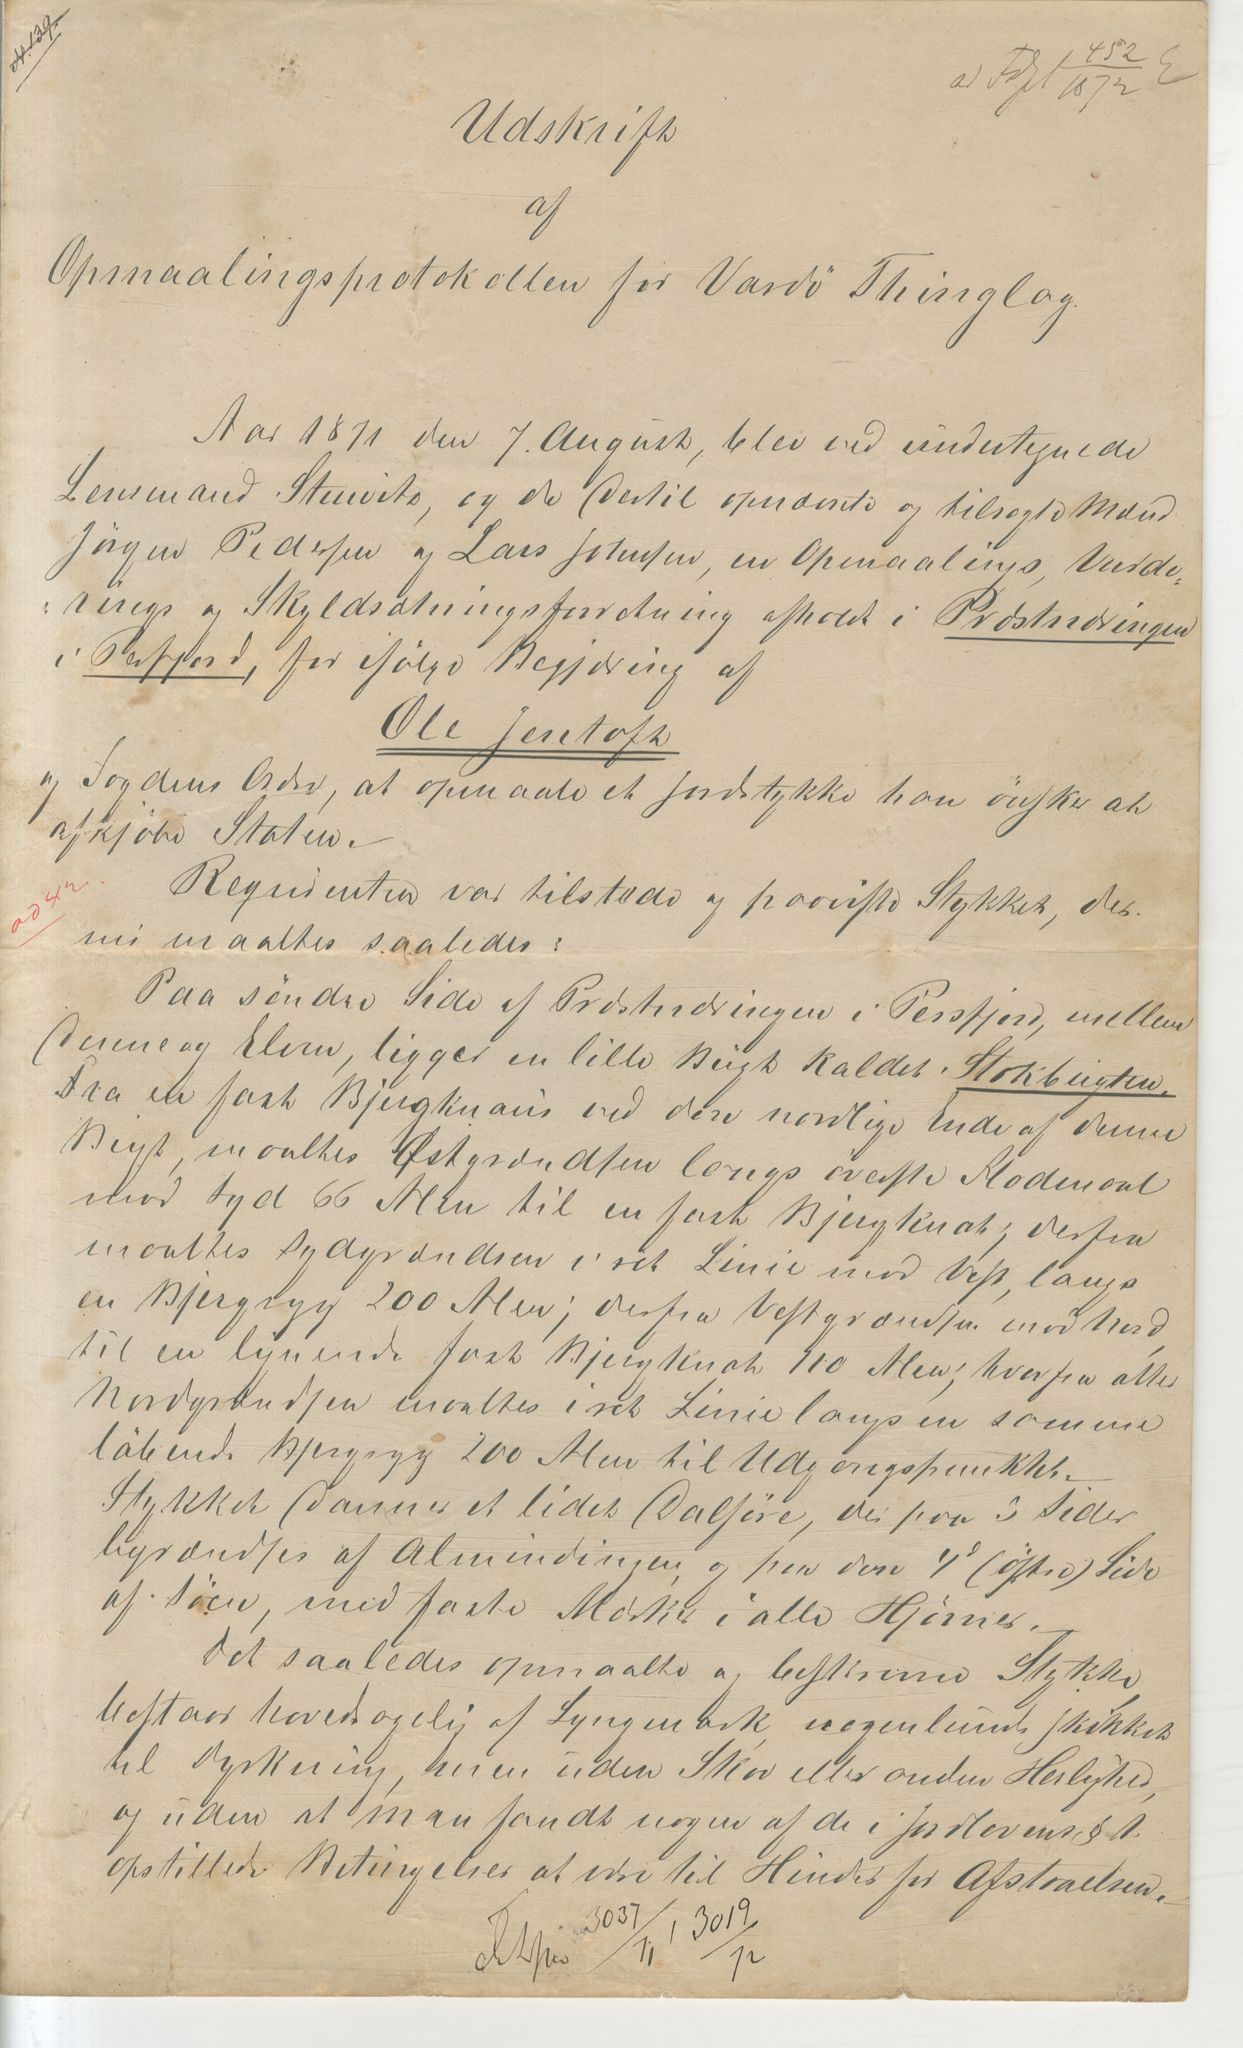 N. 139.
452
1872
Udskrift
af
Opmaalingsprotokollen for Vardö Thinglag.
Aar 1871 den 7. August, blev ved undertegnede
Lensmand, og de dertil opnævnte og tilsagte Mænd
Jörgen Pedersen og Lars Johnsen, en Opmaalings, Vurde-
rings og Skyldsætningsforretning afholdt i Præstnæringen
i Persfjord, for ifölge Begjæring af
Ole Jentoft
og Fogdens Ordre, at opmaale et Jordstykke han önsker at
afkjöbe Staten.
Reqvirenten var tilstæde og paaviste Stykket, der
nu maaltes saaledes:
ad 42
Paa söndre Side af Præstnæringen i Persfjord, mellem
denne og Elven, ligger en lille Bugt kaldet Stokbugten.
Fra en fast Bjergknaus ved den nordlige Ende af denne
Bugt, maaltes Østgrændsen langs överste Flodemaal
mod Syd 66 Alen til en fast Bjergknat; derfra
maaltes Sydgrændsen i ret Linie mod Vest, langs
en Bjergryg 200 Alen; derfra Vestgrændsen mod Nord,
til en lignende fast Bjergknat 110 Alen; hvorfra atter
Nordgrændsen maaltes i ret Linie langs en samme
löbende Bjergryg 200 Alen til Udgangspunktet.
Stykket danner et lidet Dalföre, der paa 3 Sider
begrændses af Almindingen, og paa den 4de (östre) Side
af Söen, med faste Mærker i alle Hjörner.
Det saaledes opmaalte og beskrevne Stykke,
bestaar hovedsagelig af Lyngmark, nogenlunde skikket
til Dyrkning, men uden Skov eller anden Herlighed,
og uden at man fandt nogen af de i Jordlovens § 1
opstillede Betingelser at være til Hinder for Afstaaelsen.
3037/71, 3019/72